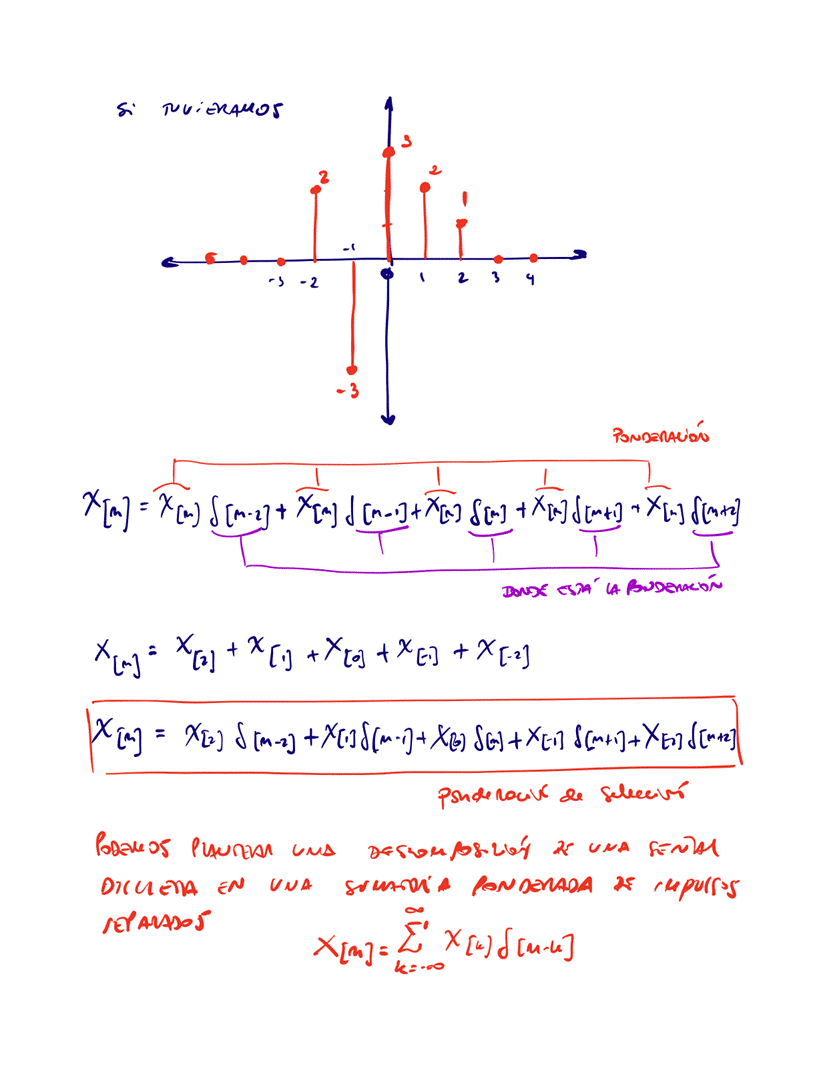 Si TUVIERAMOS
3
2
2
1
-1
-3 -2 1 2 3 4
-3
PONDERACIÓN
X[n] = X[n] δ[n-2] + X[n] δ[n-1] + X[n] δ[n] + X[n] δ[n+1] + X[n] δ[n+2]
DONDE ESTÁ LA PONDERACIÓN
X[n] = X[2] + X[1] + X[0] + X[-1] + X[-2]
X[n] = X[2] δ[n-2] + X[1] δ[n-1] + X[0] δ[n] + X[-1] δ[n+1] + X[-2] δ[n+2]
Ponderación de selección
PODEMOS PLANTEAR UNA DESCOMPOSICIÓN DE UNA SEÑAL
DISCRETA EN UNA SUMATORIA PONDERADA DE IMPULSOS
SEPARADOS
X[n] = ∑ k=-∞ ∞ X[k] δ[n-k]